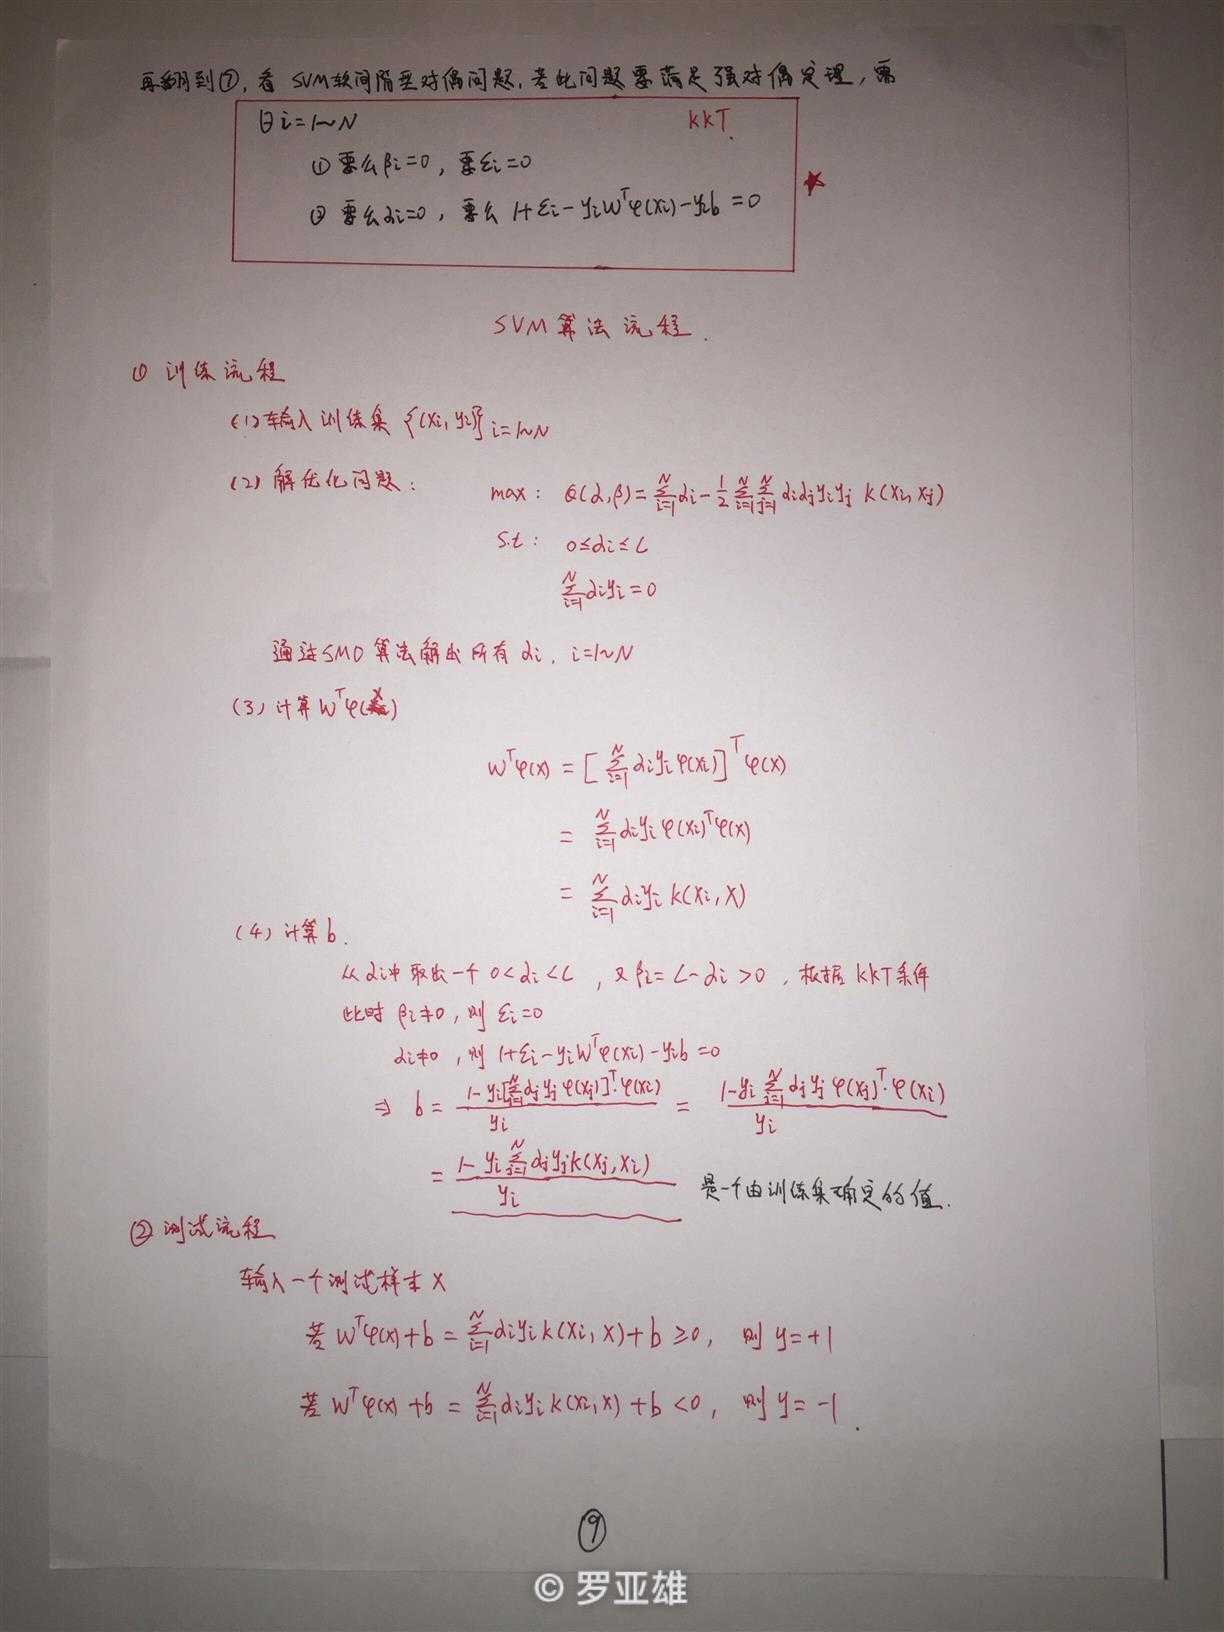 再翻到⑦,看 SVM软间隔至对偶问题,若此问题要满足强对偶定理,需
日i=1~N KKT.
① 要么βi=0, 要εi=0
② 要么αi=0, 要么 1+εi-yiWᵀφ(xi)-yib=0
SVM算法流程.
① 训练流程
(1) 输入训练集 {(xi, yi)} i=1~N
(2) 解优化问题: max: Θ(α,β)=∑_{i=1}^{N}αi-1/2∑_{i=1}^{N}∑_{j=1}^{N}αiαjyiyj K(xi,xj)
s.t: 0≤αi≤C
∑_{i=1}^{N}αiyi=0
通过SMO算法解出所有αi, i=1~N
(3) 计算Wᵀφ(x)
Wᵀφ(x) = [∑_{i=1}^{N}αiyiφ(xi)]ᵀφ(x)
= ∑_{i=1}^{N}αiyiφ(xi)ᵀφ(x)
= ∑_{i=1}^{N}αiyi K(xi,x)
(4) 计算b.
从αi中取出一个 0<αi<C, 又βi=C-αi>0, 根据KKT条件
此时 βi≠0, 则 εi=0
αi≠0, 则 1+εi-yiWᵀφ(xi)-yib=0
⇒ b= (1-yi[∑_{j=1}^{N}αjyjφ(xj)]ᵀ·φ(xi))/yi = (1-yi∑_{j=1}^{N}αjyjφ(xj)ᵀ·φ(xi))/yi
= (1-yi∑_{j=1}^{N}αjyjK(xj,xi))/yi 是一个由训练集确定的值.
② 测试流程
输入一个测试样本X
若Wᵀφ(x)+b=∑_{i=1}^{N}αiyiK(xi,x)+b≥0, 则 y=+1
若Wᵀφ(x)+b=∑_{i=1}^{N}αiyiK(xi,x)+b<0, 则 y=-1.
⑨
© 罗亚雄